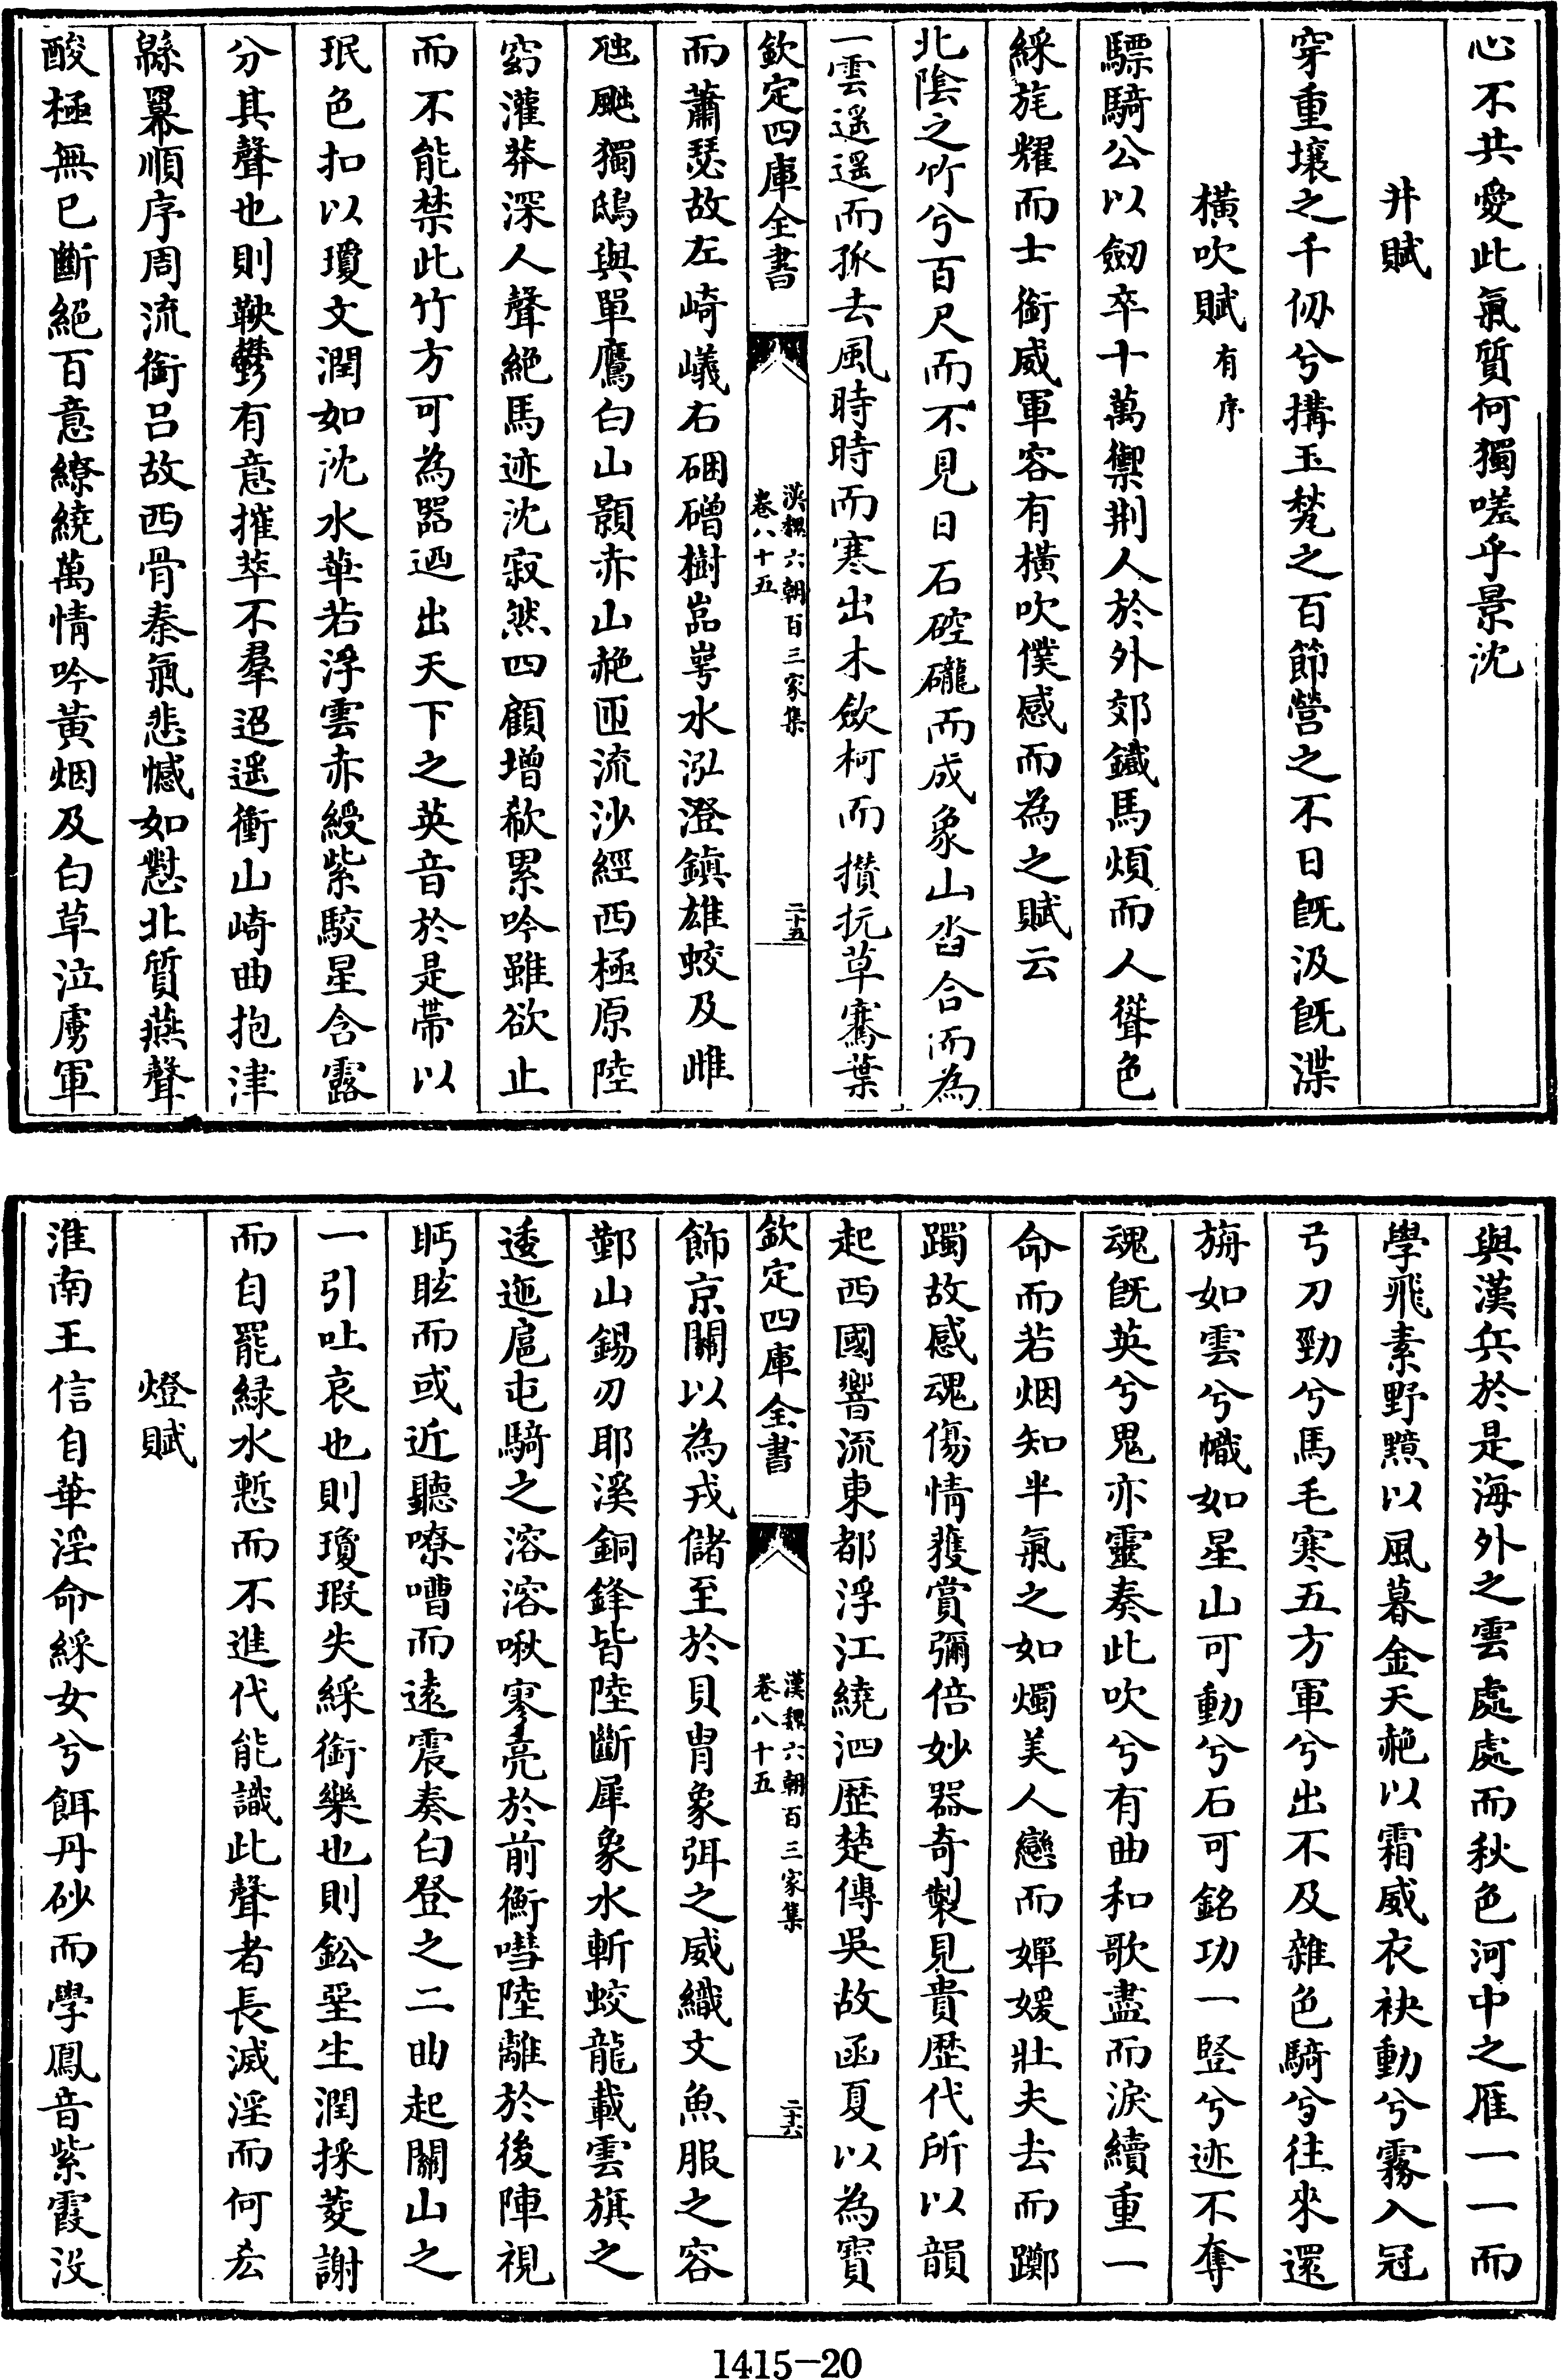 心不共愛此氣質何獨嗟乎景沈
井賦
穿重壤之千仞兮搆玉甃之百節營之不日旣汲旣渫
橫吹賦有序
驃騎公以劒卒十萬禦荆人於外郊鐵馬煩而人聳色
綵旄耀而士銜威軍容有橫吹僕感而為之賦云
北陰之竹兮百尺而不見日石硿礲而成象山沓合而為
一雲遥遥而孤去風時時而寒出木斂柯而攅抏草騫葉
欽定四庫全書
漢魏六朝百三家集
卷八十五
二十五
而蕭瑟故左崎嶬右硱磳樹嵓崿水泓澄鎮雄蛟及雌
虺颫獨鴟與單鷹白山顥赤山赩匝流沙經西極原陸
窈灌莽深人聲絕馬迹沈寂然四顧增欷累吟雖欲止
而不能禁此竹方可為器迺出天下之英音於是帶以
珉色扣以瓊文潤如沈水華若浮雲赤綬紫駮星含露
分其聲也則鞅鬱有意摧萃不羣迢遥衝山崎曲抱津
緜羃順序周流銜呂故西骨秦氣悲憾如懟北質燕聲
酸極無已斷絕百意繚繞萬情吟黃烟及白草泣虜軍
與漢兵於是海外之雲處處而秋色河中之雁一一而
學飛素野黯以風暮金天赩以霜威衣袂動兮霧入冠
弓刀勁兮馬毛寒五方軍兮出不及雜色騎兮往來還
旃如雲兮幟如星山可動兮石可銘功一豎兮迹不奪
魂旣英兮鬼亦靈奏此吹兮有曲和歌盡而淚續重一
命而若烟知半氣之如燭美人戀而嬋媛壯夫去而躑
躅故感魂傷情獲賞彌倍妙器奇製見貴歴代所以韻
起西國響流東都浮江繞泗歴楚傳吳故函夏以為寶
欽定四庫全書
漢魏六朝百三家集
卷八十五
二十六
飾京關以為戎儲至於貝胄象弭之威織文魚服之容
鄞山錫刃耶溪銅鋒皆陸斷犀象水斬蛟龍載雲旗之
逶迤扈屯騎之溶溶啾寥亮於前衡嘒陸離於後陣視
眄眩而或近聽嘹嘈而遠震奏白登之二曲起關山之
一引吐哀也則瓊瑕失綵銜樂也則鈆堊生潤採菱謝
而自罷綠水慙而不進代能識此聲者長滅淫而何𠫤
燈賦
淮南王信自華淫命綵女兮餌丹砂而學鳳音紫霞没
1415-20